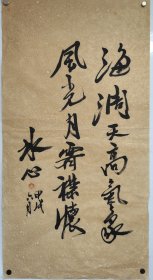 海阔天高气象
风光月霁襟怀
冰心